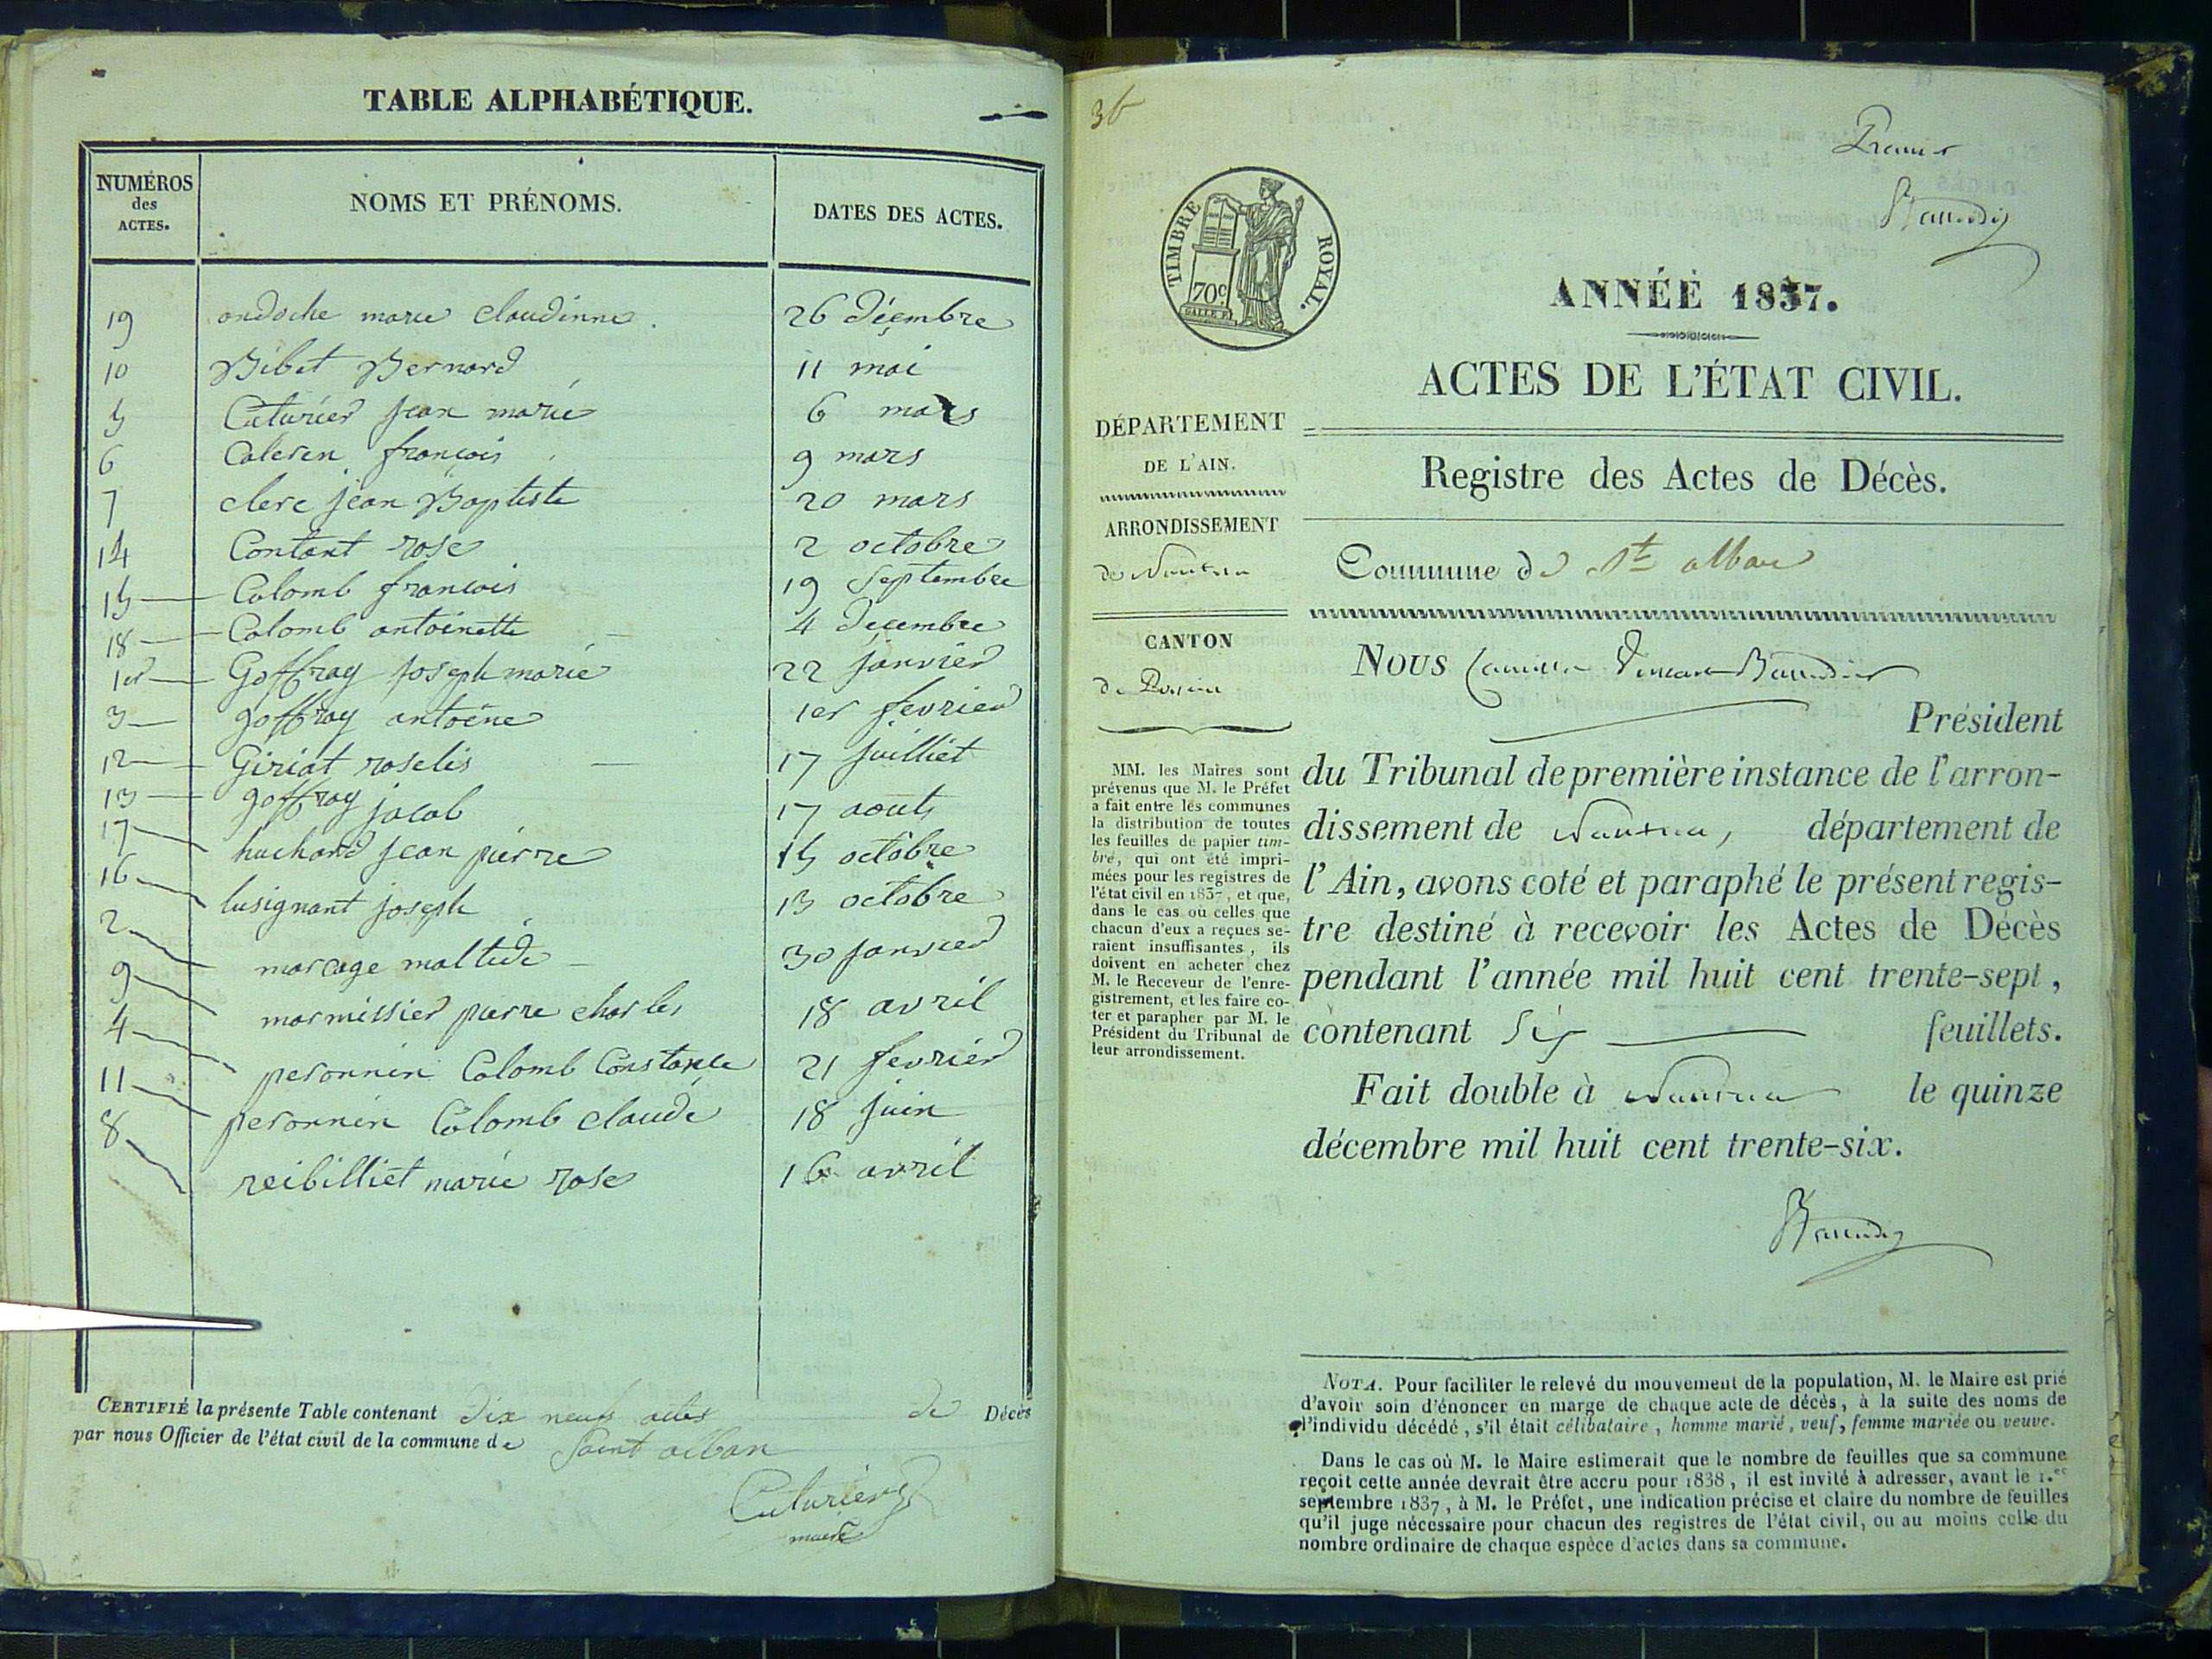 TABLE ALPHABÉTIQUE.
NUMÉROS des ACTES.
NOMS ET PRÉNOMS.
DATES DES ACTES.
19 andoche marie Claudinne 26 décembre
10 Bibet Bernard 11 mai
5 Cuturier jean marie 6 mars
6 françois 9 mars
7 clerc jean Baptiste 20 mars
14 Contant rose 2 octobre
15 Colomb francois 19 Septembre
18 Colomb antoinette 4 decembre
1er Goffray joseph marie 22 janvier
3 goffray antoine 1er fevrier
12 Giriat roselis 17 juilliet
13 goffray jacob 17 aout
17 huchard jean pierre 15 octobre
16 lusignant joseph 13 octobre
2 30 janvier
9 marmissier pierre charles 18 avril
4 peronnin Colomb Constance 21 fevrier
11 peronnin Colomb claude 18 juin
8 reibilliet marie rose 16 avril
CERTIFIÉ la présente Table contenant dix neuf actes de Décès
par nous Officier de l'état civil de la commune de Saint alban
Cuturier
maire
36
Premier
TIMBRE ROYAL.
70c
ANNÉE 1837.
ACTES DE L'ÉTAT CIVIL.
Registre des Actes de Décès.
DÉPARTEMENT
DE L'AIN.
ARRONDISSEMENT
de Nantua
CANTON
de Poncin
MM. les Maires sont
prévenus que M. le Préfet
a fait entre les communes
la distribution de toutes
les feuilles de papier tim-
bré, qui ont été impri-
mées pour les registres de
l'état civil en 1837, et que,
dans le cas où celles que
chacun d'eux a reçues se-
raient insuffisantes, ils
doivent en acheter chez
M. le Receveur de l'enre-
gistrement, et les faire co-
ter et parapher par M. le
Président du Tribunal de
leur arrondissement.
Commune de St alban
NOUS Camille Vincent Baudin
Président
du Tribunal de première instance de l'arron-
dissement de Nantua, département de
l'Ain, avons coté et paraphé le présent regis-
tre destiné à recevoir les Actes de Décès
pendant l'année mil huit cent trente-sept,
contenant Six feuillets.
Fait double à Nantua le quinze
décembre mil huit cent trente-six.
NOTA. Pour faciliter le relevé du mouvement de la population, M. le Maire est prié
d'avoir soin d'énoncer en marge de chaque acte de décès, à la suite des noms de
l'individu décédé, s'il était célibataire, homme marié, veuf, femme mariée ou veuve.
Dans le cas où M. le Maire estimerait que le nombre de feuilles que sa commune
reçoit cette année devrait être accru pour 1838, il est invité à adresser, avant le 1.er
septembre 1837, à M. le Préfet, une indication précise et claire du nombre de feuilles
qu'il juge nécessaire pour chacun des registres de l'état civil, ou au moins celle du
nombre ordinaire de chaque espèce d'actes dans sa commune.